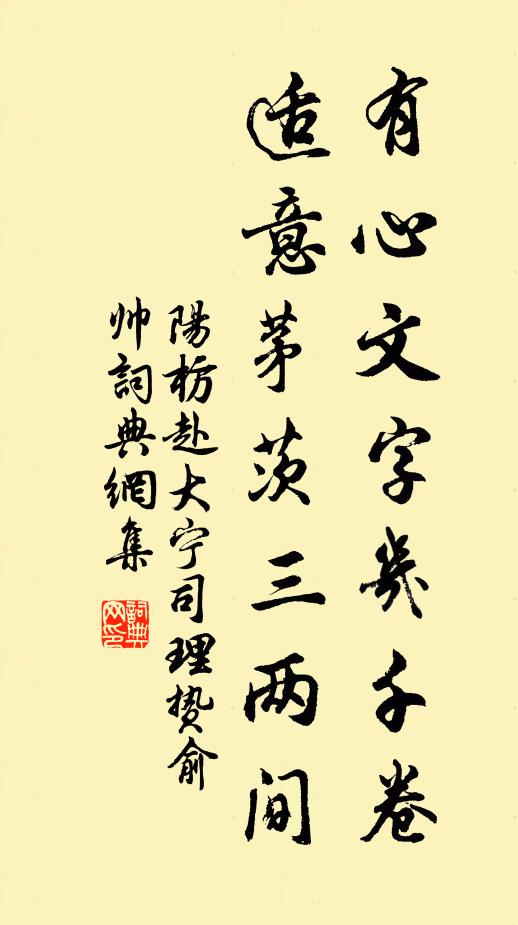 有心文字几千卷
适意茅茨三两间
陽枋赴大宁司理贽俞
帅詞典網集
詞典网印